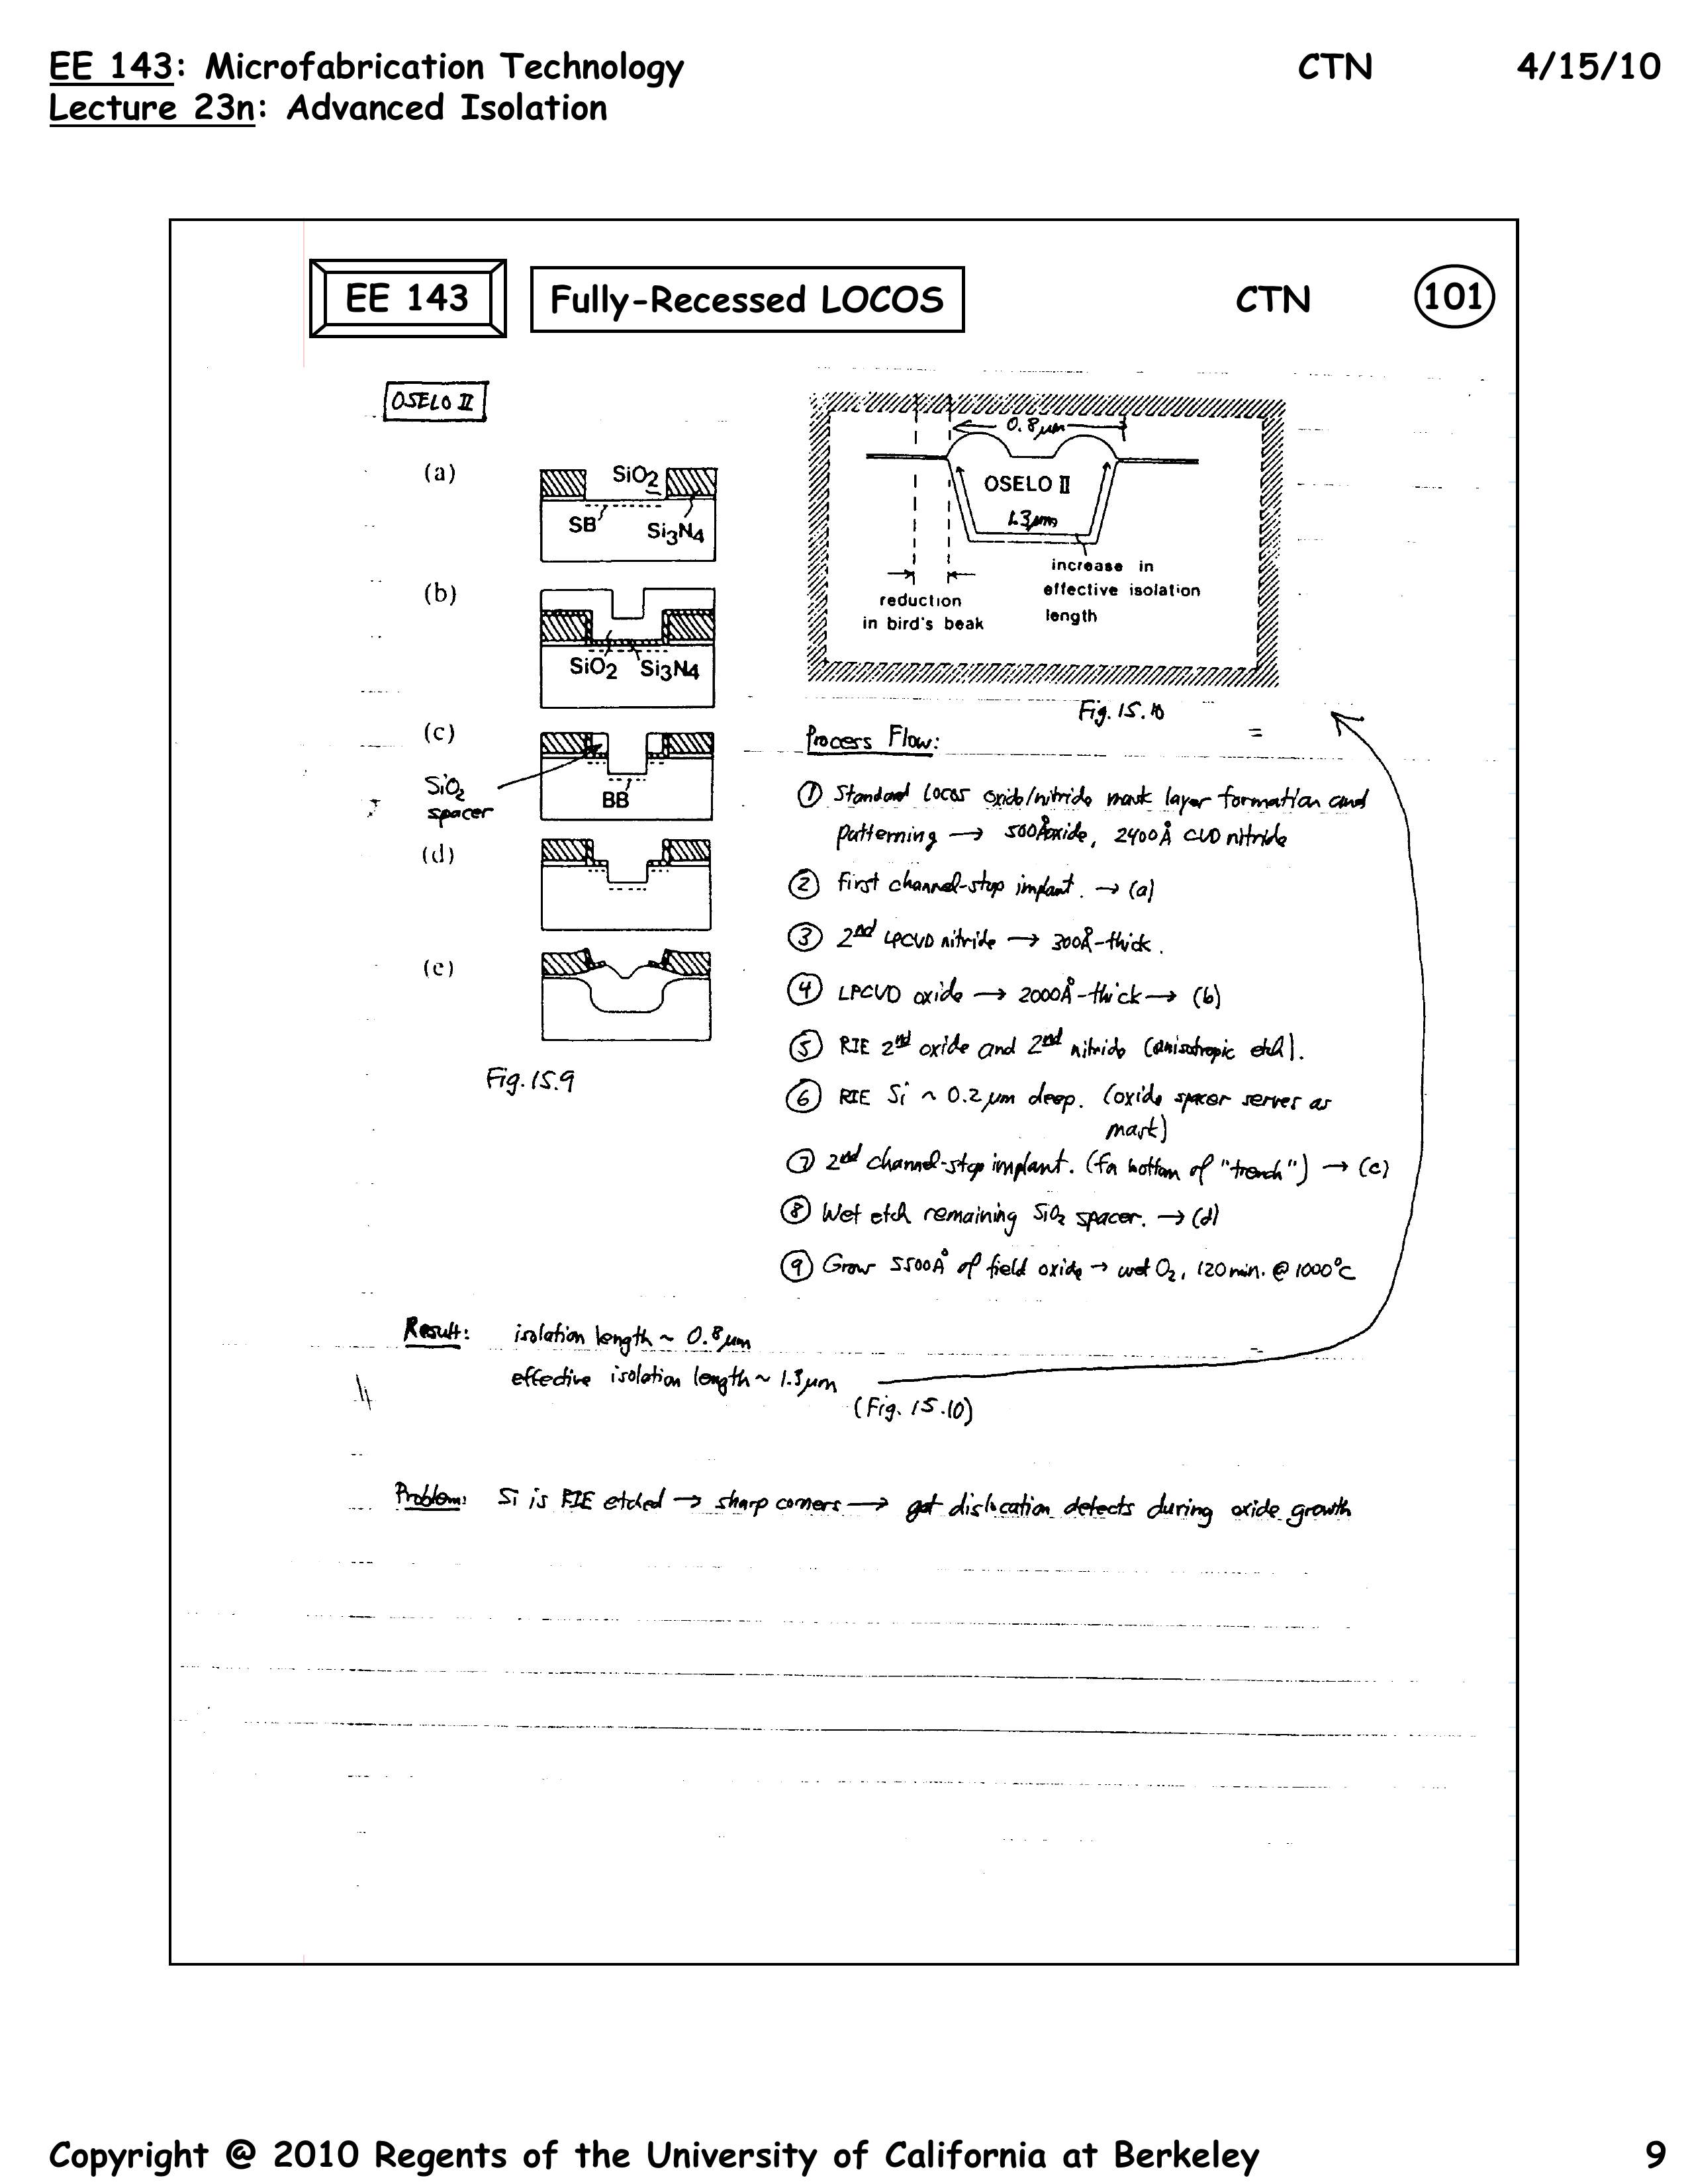 EE 143: Microfabrication Technology CTN 4/15/10
Lecture 23n: Advanced Isolation
EE 143 Fully-Recessed LOCOS CTN 101
OSELO II
(a)
SiO2
SB
Si3N4
(b)
SiO2 Si3N4
(c)
SiO2
spacer
BB
(d)
(e)
Fig. 15.9
0.8 μm
OSELO II
1.3 μm
increase in
effective isolation
length
reduction
in bird's beak
Fig. 15.10
Process Flow:
① Standard LOCOS oxide/nitride mask layer formation and
patterning → 500Å oxide, 2400Å CVD nitride
② First channel-stop implant. → (a)
③ 2nd LPCVD nitride → 300Å-thick.
④ LPCVD oxide → 2000Å-thick → (b)
⑤ RIE 2nd oxide and 2nd nitride (anisotropic etch).
⑥ RIE Si ~ 0.2 μm deep. (oxide spacer serves as
mask)
⑦ 2nd channel-stop implant. (for bottom of "trench") → (c)
⑧ Wet etch remaining SiO2 spacer. → (d)
⑨ Grow 5500Å of field oxide → wet O2, 120 min. @ 1000°C
Result: isolation length ~ 0.8 μm
effective isolation length ~ 1.3 μm
(Fig. 15.10)
Problem: Si is RIE etched → sharp corners → get dislocation defects during oxide growth
Copyright @ 2010 Regents of the University of California at Berkeley 9